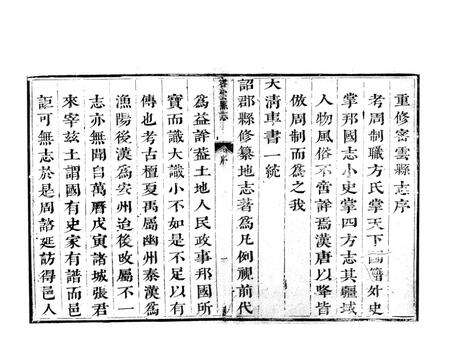 重修密雲縣志序
考周制職方氏掌天下圖籍外史
掌邦國志小史掌四方志其疆域
人物風俗不啻詳焉漢唐以降皆
倣周制而爲之我
大清車書一統
詔郡縣修纂地志著爲凡例視前代
密雲縣志 序 一
爲益詳蓋土地人民政事邦國所
寶而識大識小不如是不足以有
傳也考古檀夏禹屬幽州秦漢爲
漁陽後漢爲安州迨後改屬不一
志亦無聞自萬曆戊寅諸城張君
來宰茲土謂國有史家有譜而邑
詎可無志於是周諮延訪得邑人